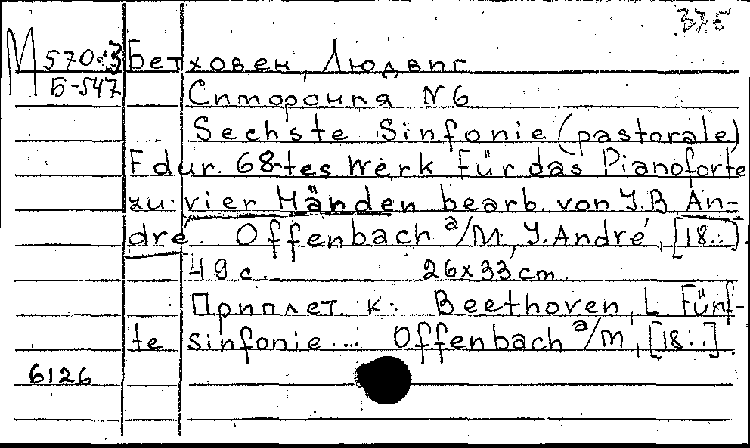 375
М 570:3 Бетховен, Людвиг
Б-547
Симфония N6
Sechste Sinfonie (pastorale)
F dur. 68-tes Werk für das Pianoforte
zu vier Händen bearb. von J.B. An-
dré. Offenbach a/M, J. André, [18..].
49 с. 26х33 cm.
Приплет. к: Beethoven, L. Fünf-
te sinfonie... Offenbach a/M, [18..].
6126